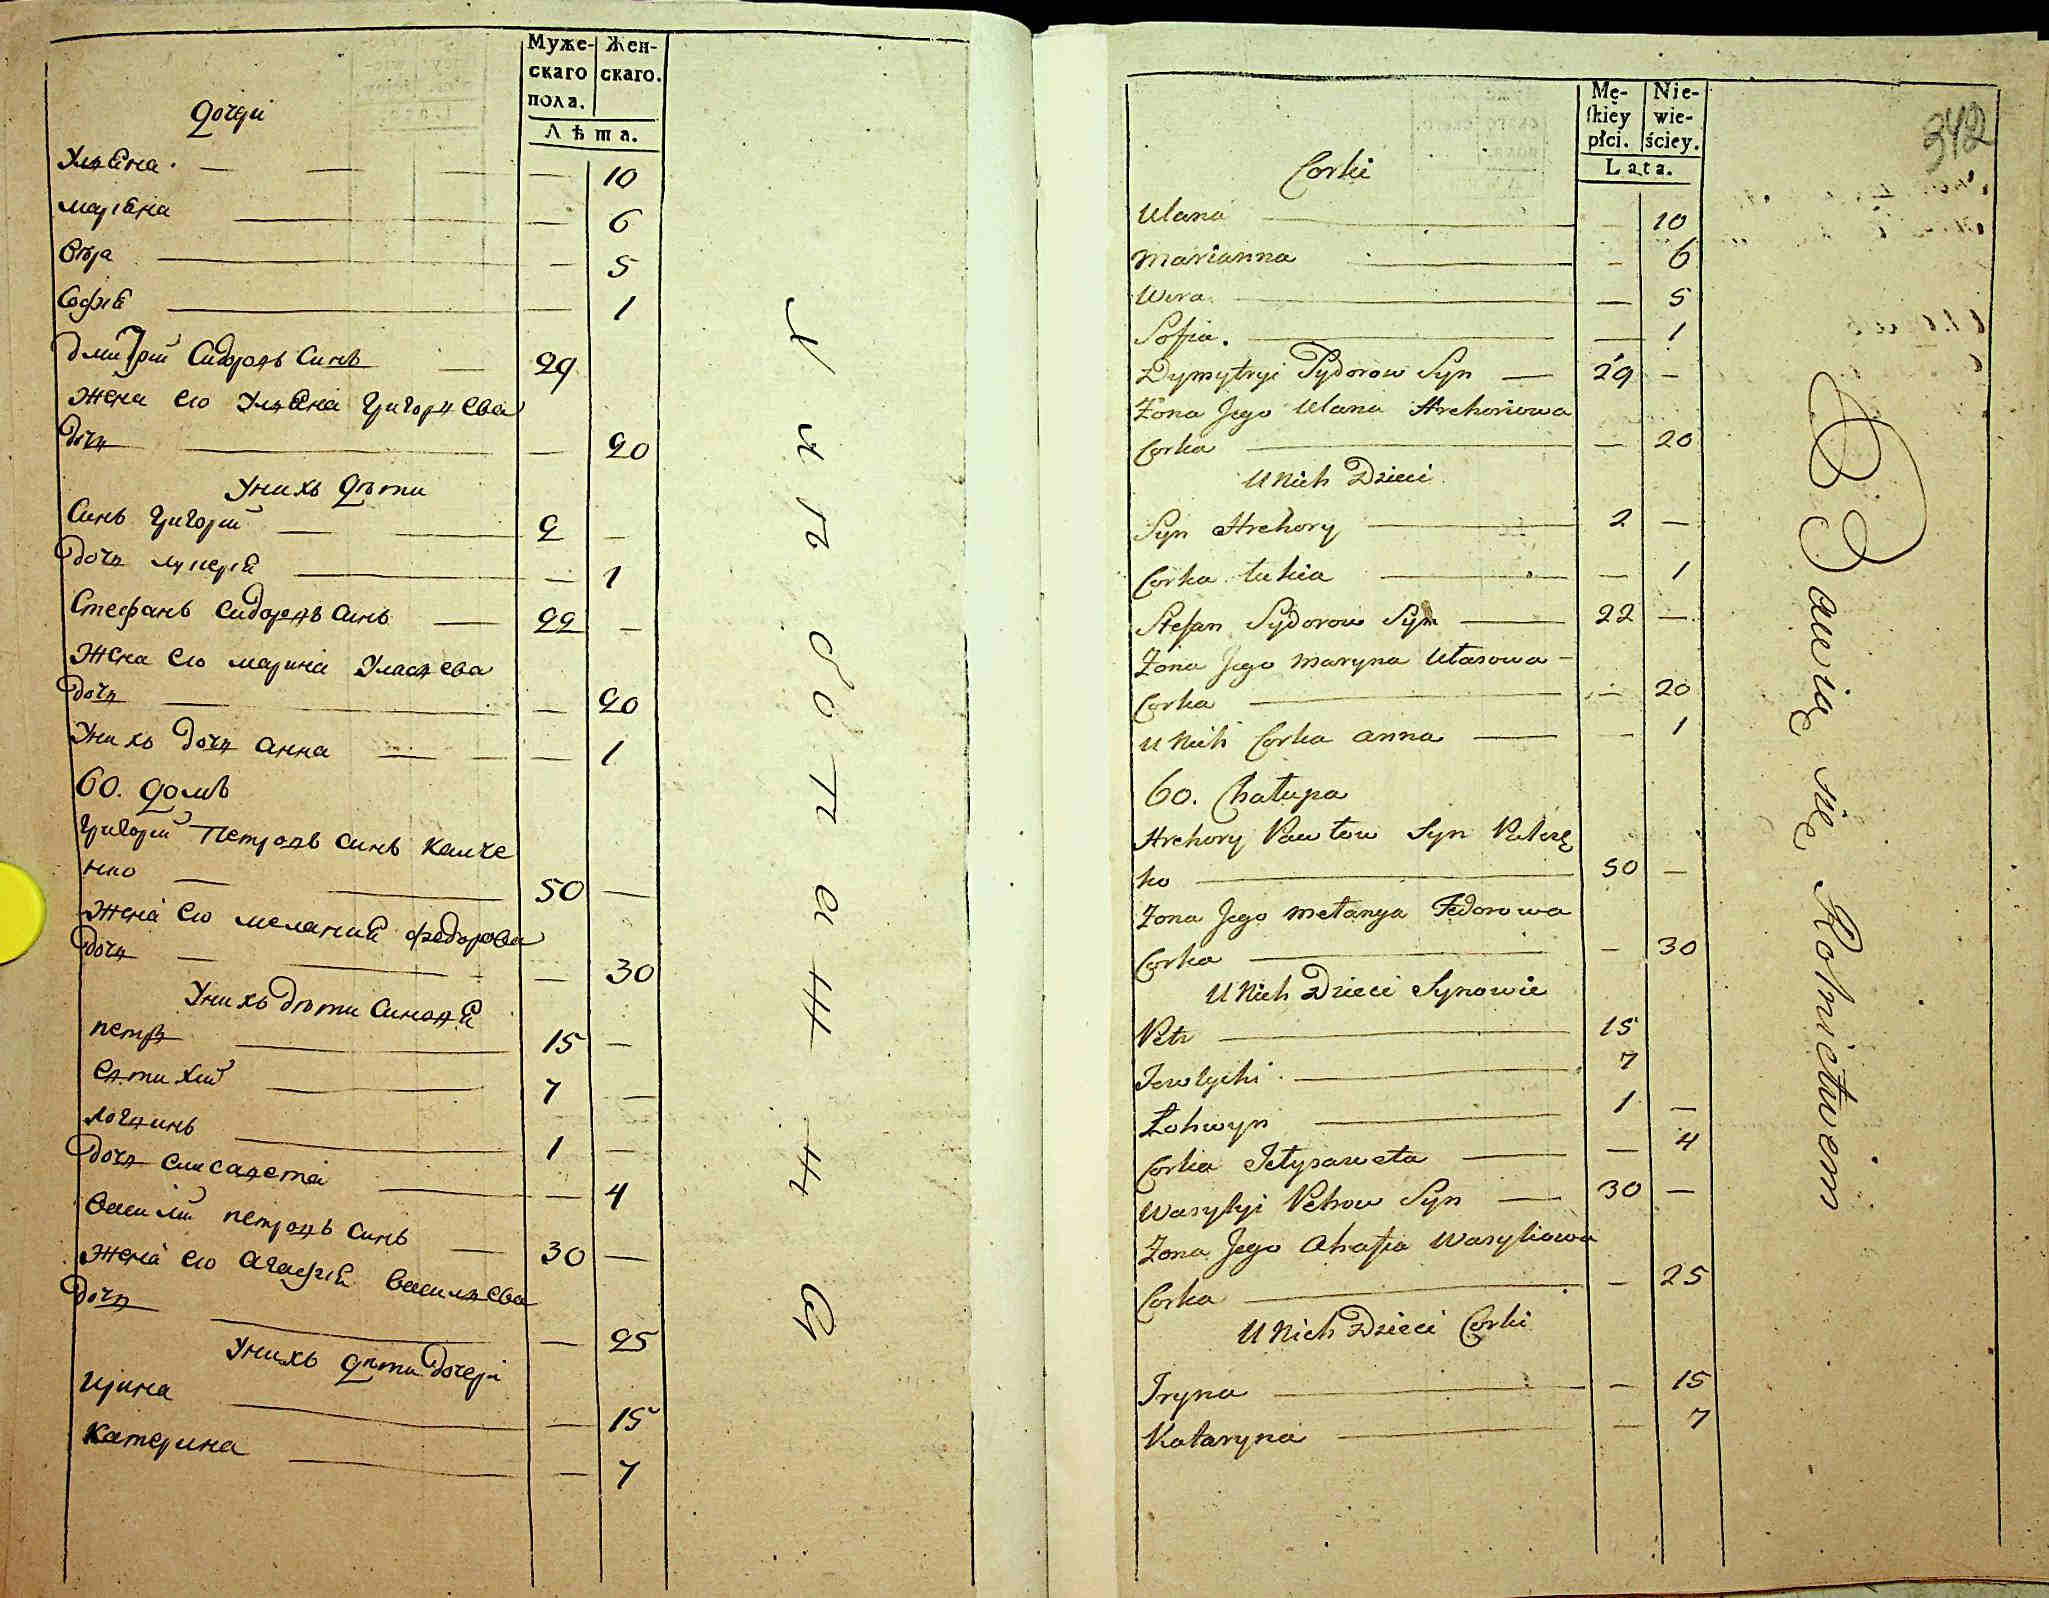 Муже-
скаго
пола.
Жен-
скаго.
Лѣта.
дочери
Ульяна 10
марiяна 6
Вѣра 5
Софiя 1
дмитрiй Сидоровъ Синъ 29
Жена его Ульяна Григорьева
дочь 20
У нихъ дѣти
Синъ Григорiй 2
дочь лукерiя 1
Стефанъ Сидоровъ Синъ 22
Жена его марина Уласьева
дочь 20
У нихъ дочь анна 1
60. домъ
Григорiй Петровъ Синъ
50
Жена его меланiя федорова
дочь 30
У нихъ дѣти Синовья
петръ 15
Евтихiй 7
логвинъ 1
дочь елисавета 4
Василiй петровъ Синъ 30
Жена его Агафiя Васильева
дочь 25
У нихъ дѣти дочери
Ирина 15
Катерина 7
Mę-
ſkiey
płci.
Nie-
wie-
ściey.
Lata.
342
Corki
Ulana 10
Marianna 6
Wera 5
Sofia. 1
Dymytryi Sydorow Syn 29
Żona Jego Ulana Hrehorowa
Corka 20
U Nich Dzieci
Syn Hrehory 2
Corka Łukia 1
Stefan Sydorow Syn 22
Żona Jego Maryna Ułasowa
Corka 20
U Nich Corka anna 1
60. Chałupa
Hrehory Pawłow Syn
ko 50
Żona Jego Mełanya Fedorowa
Corka 30
U Nich Dzieci Synowie
Petr 15
Jewtychi 7
Łohwyn 1
Corka Jełysaweta 4
Wasylyi Petrow Syn 30
Żona Jego Ahafia Wasylowa
Corka 25
U Nich Dzieci Corki
Iryna 15
Kataryna 7
Bawią się Rolnictwem